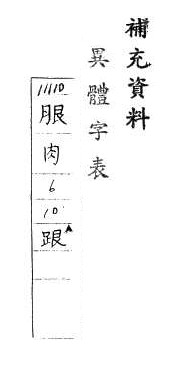 補充資料
異體字表
11110
肉
6
10
跟